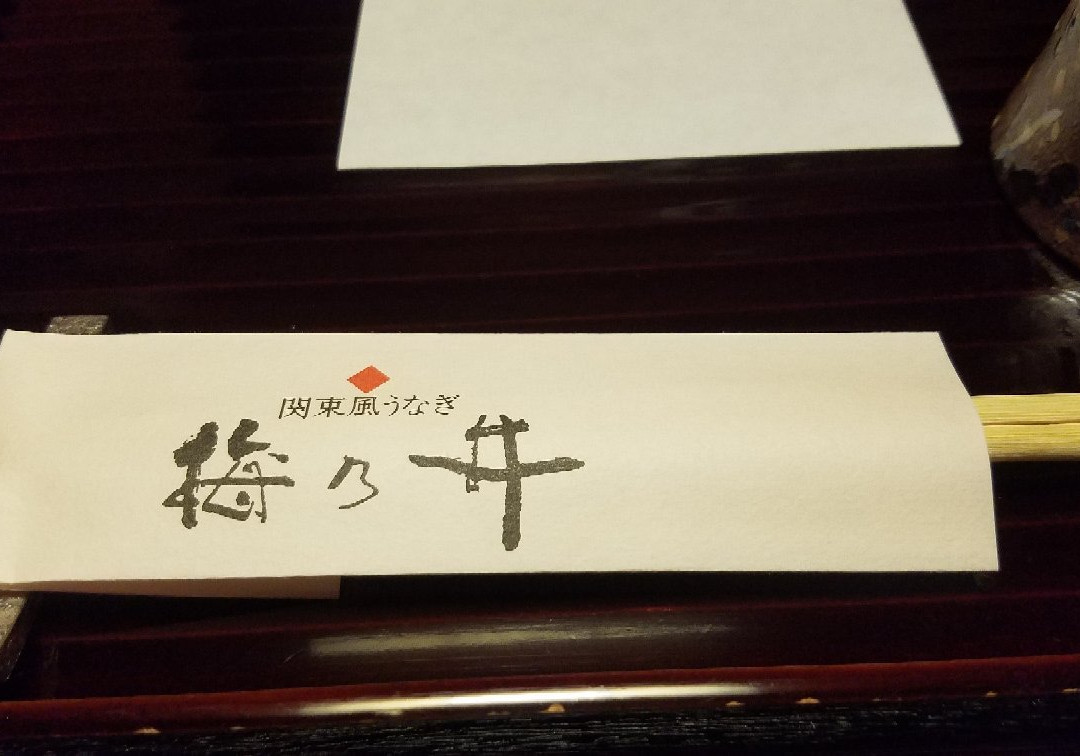 関東風うなぎ
梅乃井